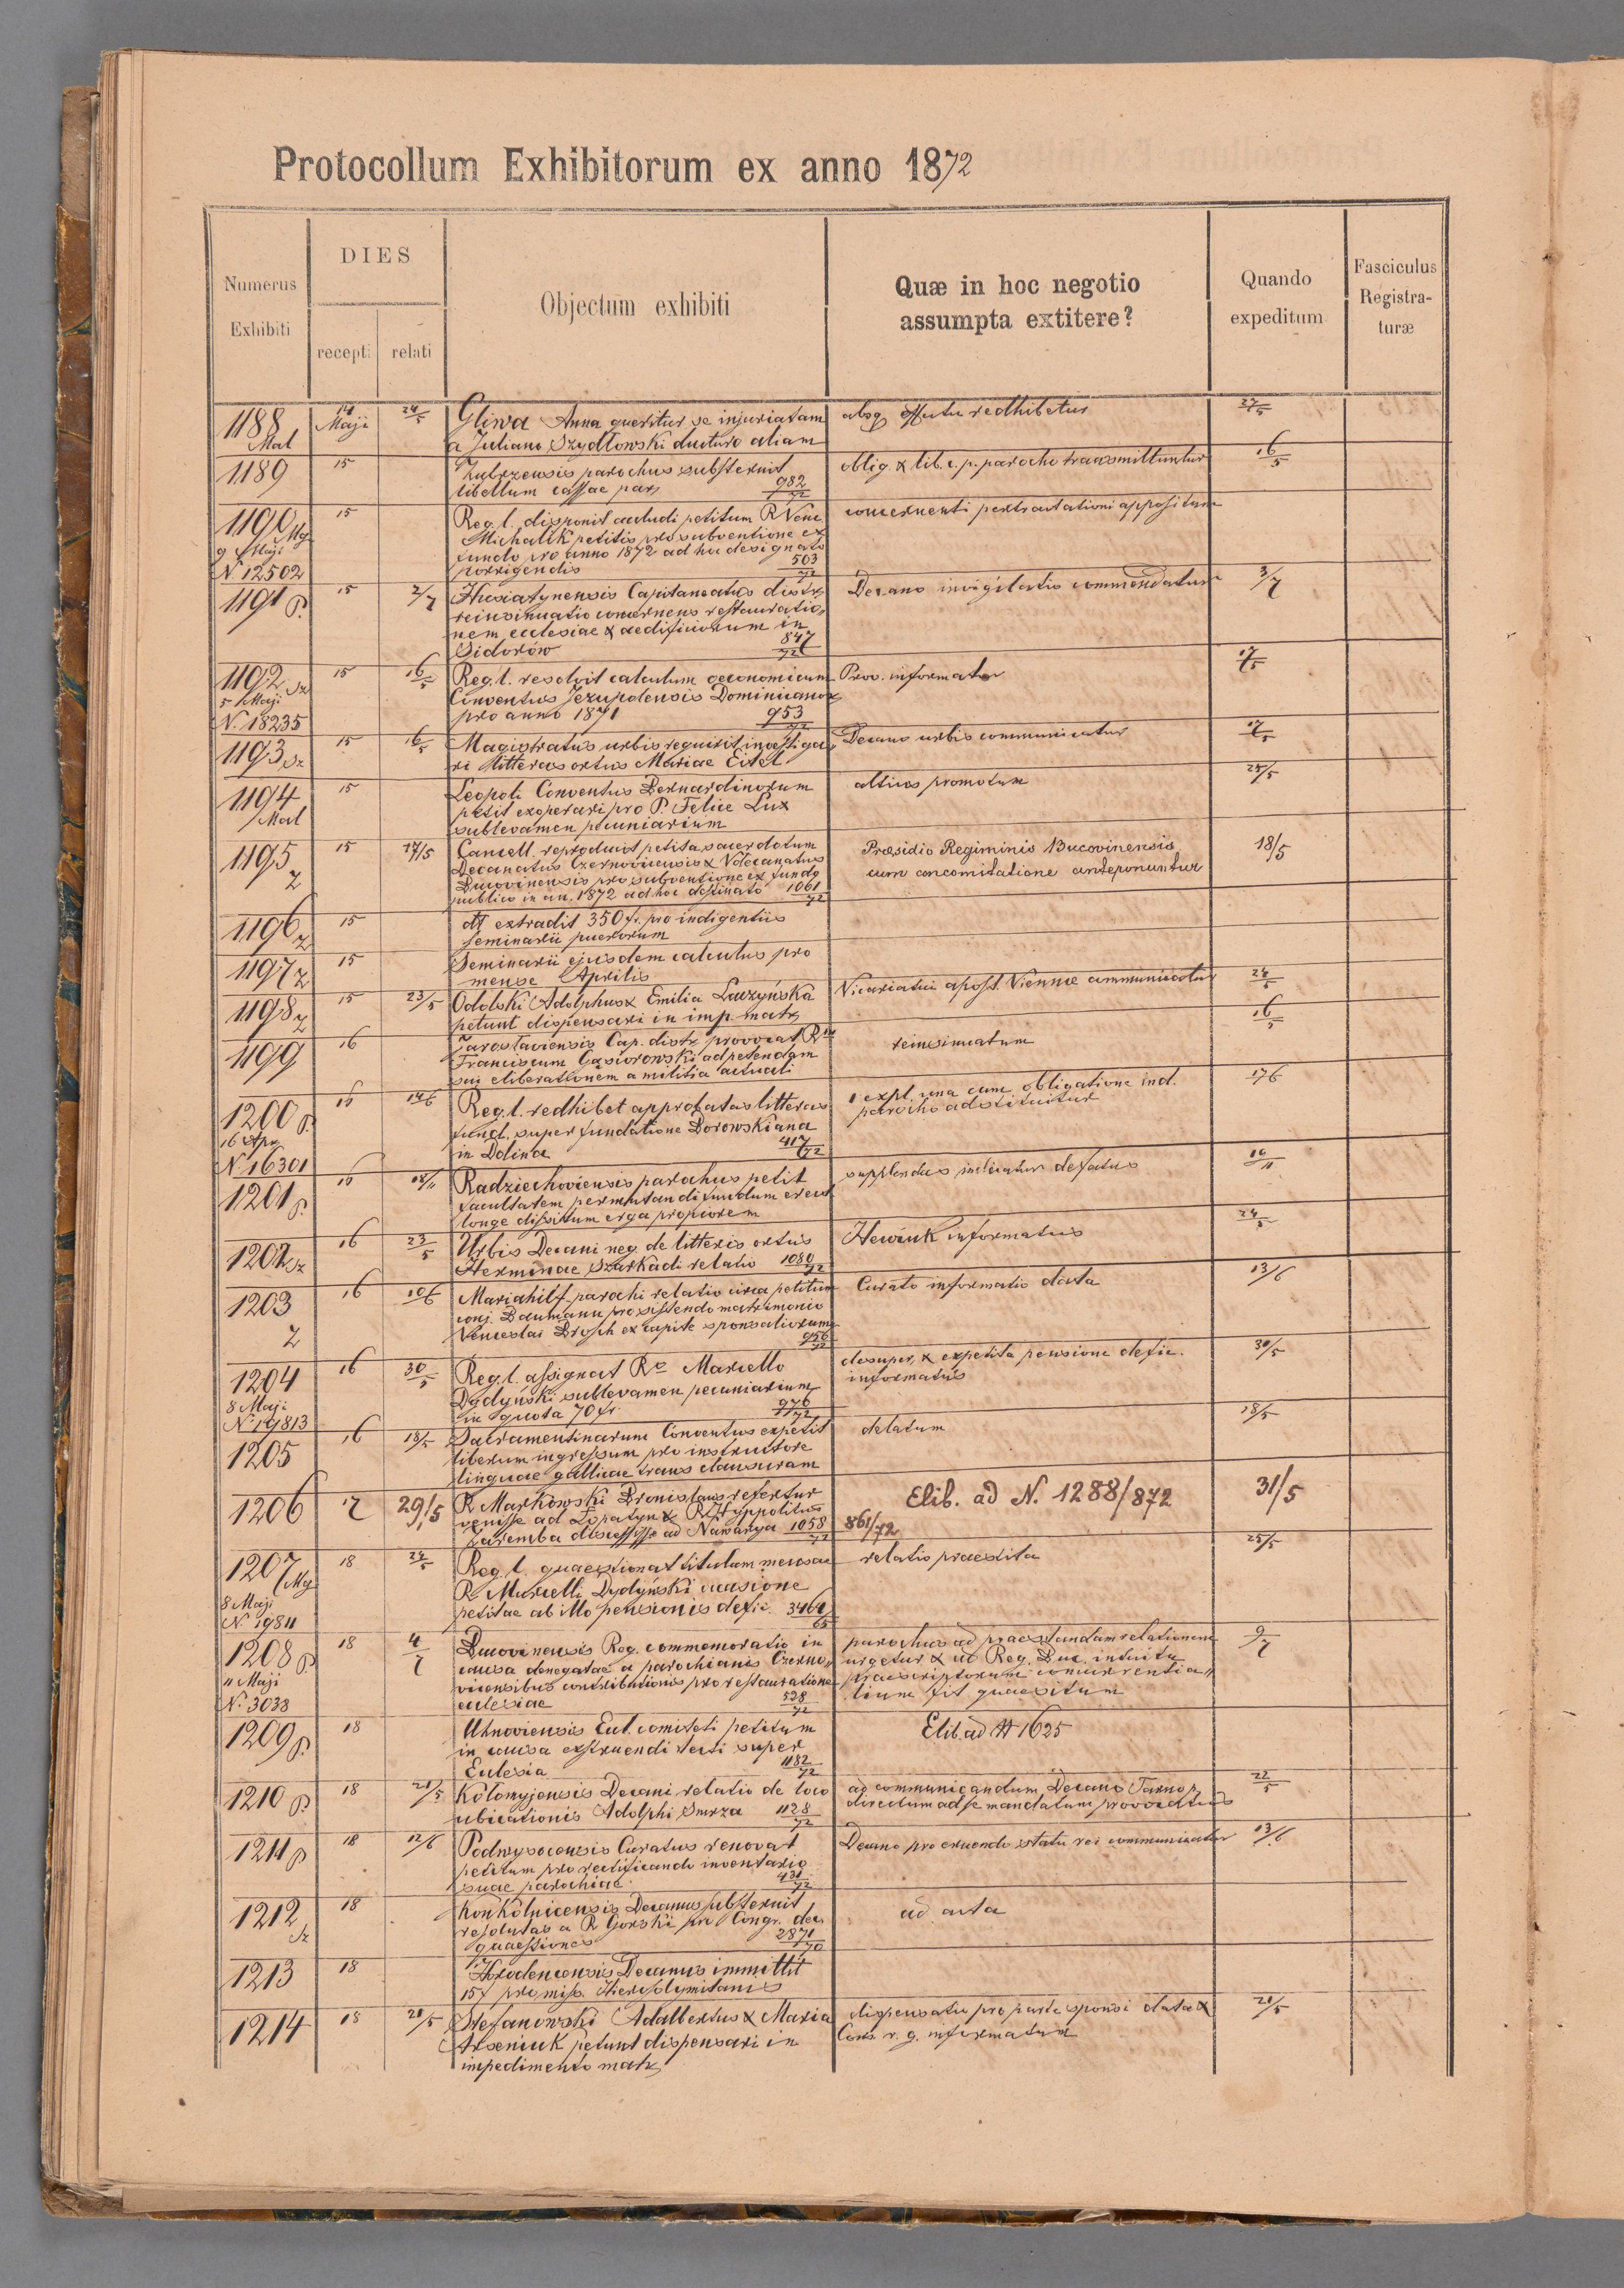 Protocollum Exhibitorum ex anno 1872
Numerus Exhibiti
DIES
recepti
relati
Objectum exhibiti
Quæ in hoc negotio
assumpta extitere?
Quando
expeditum
Fasciculus
Registra-
turæ
1188 14 24/5 Gliwa Anna queritur se injuriatam absq 27/5
Mal Maji a Juliano Szydłowski ducturo aliam
1189 15 Zubrzensis parochus substernit oblig. & lib. c. p. parocho transmittuntur 16/5
libellum cassae par. 982/72
1190 Mg 15 Reg. l. disponit petitum R Venc. concernenti pertractationi appositum
9 Maji Michalik petitis pro subventione ex
N. 12502 fundo pro anno 1872 ad hu designato
porrigendis 503/72
1191 P. 15 2/7 Husiatynensis Capitaneatus distr. Decano invigilatio commendatur 3/7
reinsinuatio concernens restauratio„
nem ecclesiae & aedificiorum in
Sidorów 847/72
1192 Sz 15 16/5 Reg. l. resolvit calculum oeconomicum Prov. informatur 17/5
5 Maji Conventus Jezupolensis Dominicanor.
N. 18235 pro anno 1871 953/72
1193 Sz 15 16/5 Magistratus urbis requirit investiga„ Decano urbis communicatur 17/5
ri litteras ortus Mariae Eitel
1194 15 Leopoli Conventus Bernardinorum altius promotum 25/5
Mal petit exoperari pro P. Felice Lux
sublevamen pecuniarium
1195 15 17/5 Cancell. reproducit petita sacerdotum Præsidio Regiminis Bucovinensis 18/5
Z Decanatus Czernovicensis & Vdecanatus cum concomitatione anteponuntur
Bucovinensis pro subventione ex fundo
publico in an. 1872 ad hoc destinato 1061/72
1196 Z 15 dtt extradit 350 fr. pro indigentiis
seminarii puerorum
1197 Z 15 Seminarii ejusdem calculus pro
mense Aprilis
1198 Z 15 23/5 Odolski Adolphus & Emilia Luczyńska Vicariatui apost. Viennae communicatur 24/5
petunt dispensari in imp. matr.
1199 16 Jaroslaviensis Cap. distr. provocat R reinsinuatum 16/5
Franciscum Gąsiorowski ad petendam
sui eliberationem a militia actuali
1200 P. 16 14/6 Reg. l. redhibet approbatas litteras 1 expl. una cum obligatione ind. 17/6
16 Apr. fund. super fundatione Borowskiana parocho adstituitur
N. 16301 in Dolina 417/72
1201 P. 16 Radziechoviensis parochus petit supplendus defectus
facultatem permutandi fundum
longe dissitum erga propiorem
1202 Sz 16 23/5 Urbis Decani neg. de litteris ortus informatus 24/5
Herminae Szarkadi relatio 1080/72
1203 16 10/6 Mariahilf parochi relatio circa petitum Curato informatio data 13/6
Z conj. Baumann pro sistendo matrimonio
Venceslai Brosch ex capite sponsaliorum
956/72
1204 16 30/5 Reg. l. assignat Ro Marcello desuper, & expedita pensione defic. 30/5
8 Maji Dydyński sublevamen pecuniarium informatus
N 19813 in quota 70 fr. 976/72
1205 16 18/5 Sacramentinarum Conventus expetit delatum 18/5
liberum ingressum pro instructore
linguae gallicae trans clausuram
1206 17 29/5 R Markowski Bronislaus refertur Elib. ad N. 1288/872 31/5
venisse ad Łopatyn & R Hyppolitus
Zaremba discessisse ad Nawarya 1058/72 861/72
1207 Mg 18 24/5 Reg. l. quaestionat titulum mensae relatio praestita 25/5
8 Maji R Marcelli Dydyński occasione
N 19811 petitae ab illo pensionis defic. 3461/65
1208 P 18 4/7 Bucovinensis Reg. commemoratio in parochus ad praestandam relationem 9/7
11 Maji causa denegatae a parochianis Czerno„ urgetur & ad Reg. Buc. intuitu
N. 3038 vicensibus contributionis pro restauratione praescriptorum concurrentia„
ecclesiae 528/72 lium fit quaesitum
1209 P. 18 Uhnoviensis Eccl. comiteti petitum Elib. ad N 1625
in causa exstruendi tecti super
Eclesia 1182/72
1210 P 18 21/5 Kolomyjensis Decani relatio de loco ad communicandum Decano Tarnop. 22/5
ubicationis Adolphi Smrza 1128/72 directum ad se mandatum provocatus
1211 P 18 12/6 Podwysocensis Curatus renovat Decano pro eruendo statu rei communicatur 13/6
petitum pro rectificando inventario
suae parochiae 431/72
1212 Sz 18 Konkolnicensis Decanus substernit ad acta
resolutas a R Gorski pro Congr. dec.
quaestiones 2871/70
1213 18 Horodencensis Decanus immittit
15 f pro miss. Hierosolymitanis
1214 18 20/5 Stefanowski Adalbertus & Maria dispensatio pro parte sponsi data & 21/5
Arseniuk petunt dispensari in Cons r. g. informatum
impedimento matr.